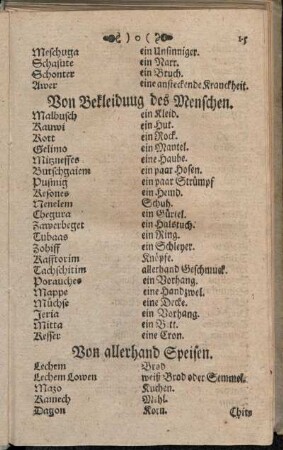 )o( 25
Meschugga ein Unsinniger.
Schasute ein Narr.
Schonter ein Bruch.
Awer eine ansteckende Kranckheit.
Von Bekleidung des Menschen.
Malbusch ein Kleid.
Kauwi ein Hut.
Rott ein Rock.
Gelimo ein Mantel.
Mitznesses eine Haube.
Butschgaiem ein paar Hosen.
Pusnig ein paar Strümpf
Kesones ein Hemd.
Nenelem Schuh.
Chegura ein Gürtel.
Zawerbeget ein Halstuch.
Tubaas ein Ring.
Zobiff ein Schleyer.
Kafftorim Knöpfe.
Tachschitim allerhand Geschmuck.
Porauches ein Vorhang.
Mappe eine Handzwel.
Müchse eine Decke.
Jeria ein Vorhang.
Mitta ein Bett.
Kesser eine Cron.
Von allerhand Speisen.
Lechem Brod
Lechem Lowen weiß Brod oder Semmel.
Mazo Kuchen.
Kamech Mehl.
Dagon Korn. Chits